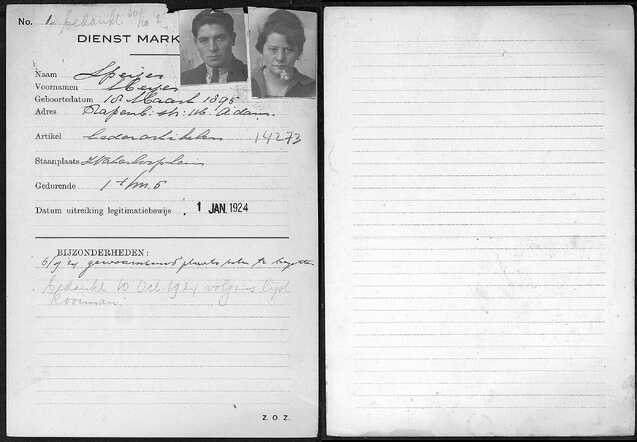 No. 1 bedankt 30/10 2
DIENST MARK
Naam Speijer
Voornamen Meyer
Geboortedatum 18 Maart 1895
Adres Rapenb. str. 116 A'dam
Artikel lederartikelen 14273
Staanplaats Waterlooplein
Gedurende 1 t/m 5
Datum uitreiking legitimatiebewijs . 1 JAN. 1924
BIJZONDERHEDEN:
6/9 24 gewaarschuwd plaats
bedankt 10 Oct. 1924 volgens
Kooiman.
Z. O. Z.